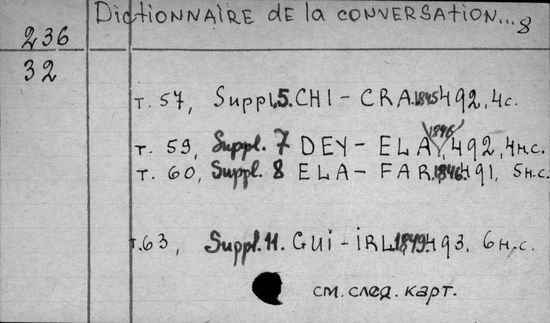 Dictionnaire de la conversation... 8
236
32
т. 57, Suppl. 5. CHI - CRA. 1845. 492, 4с.
1846
т. 59, Suppl. 7 DEY - ELA, 492, 4н.с.
т. 60, Suppl. 8 ELA - FAR. 1846. 491, 5н.с.
т. 63, Suppl. 11. GUI - IRL. 1849. 493. 6н.с.
см. след. карт.